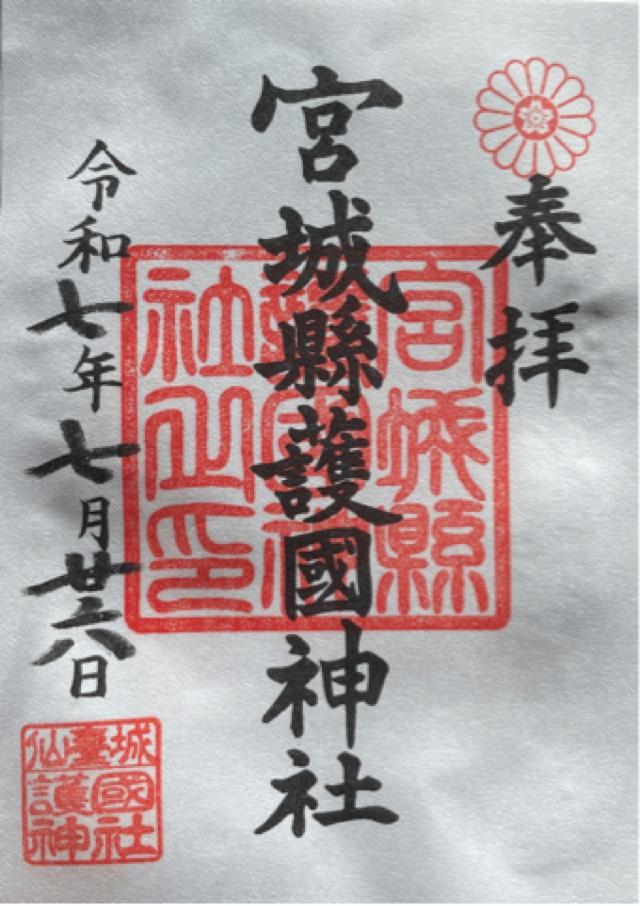 奉拝
宮城縣護國神社
令和七年七月廿六日
宮城縣
護國神
社之印
仙臺城
護國
神社